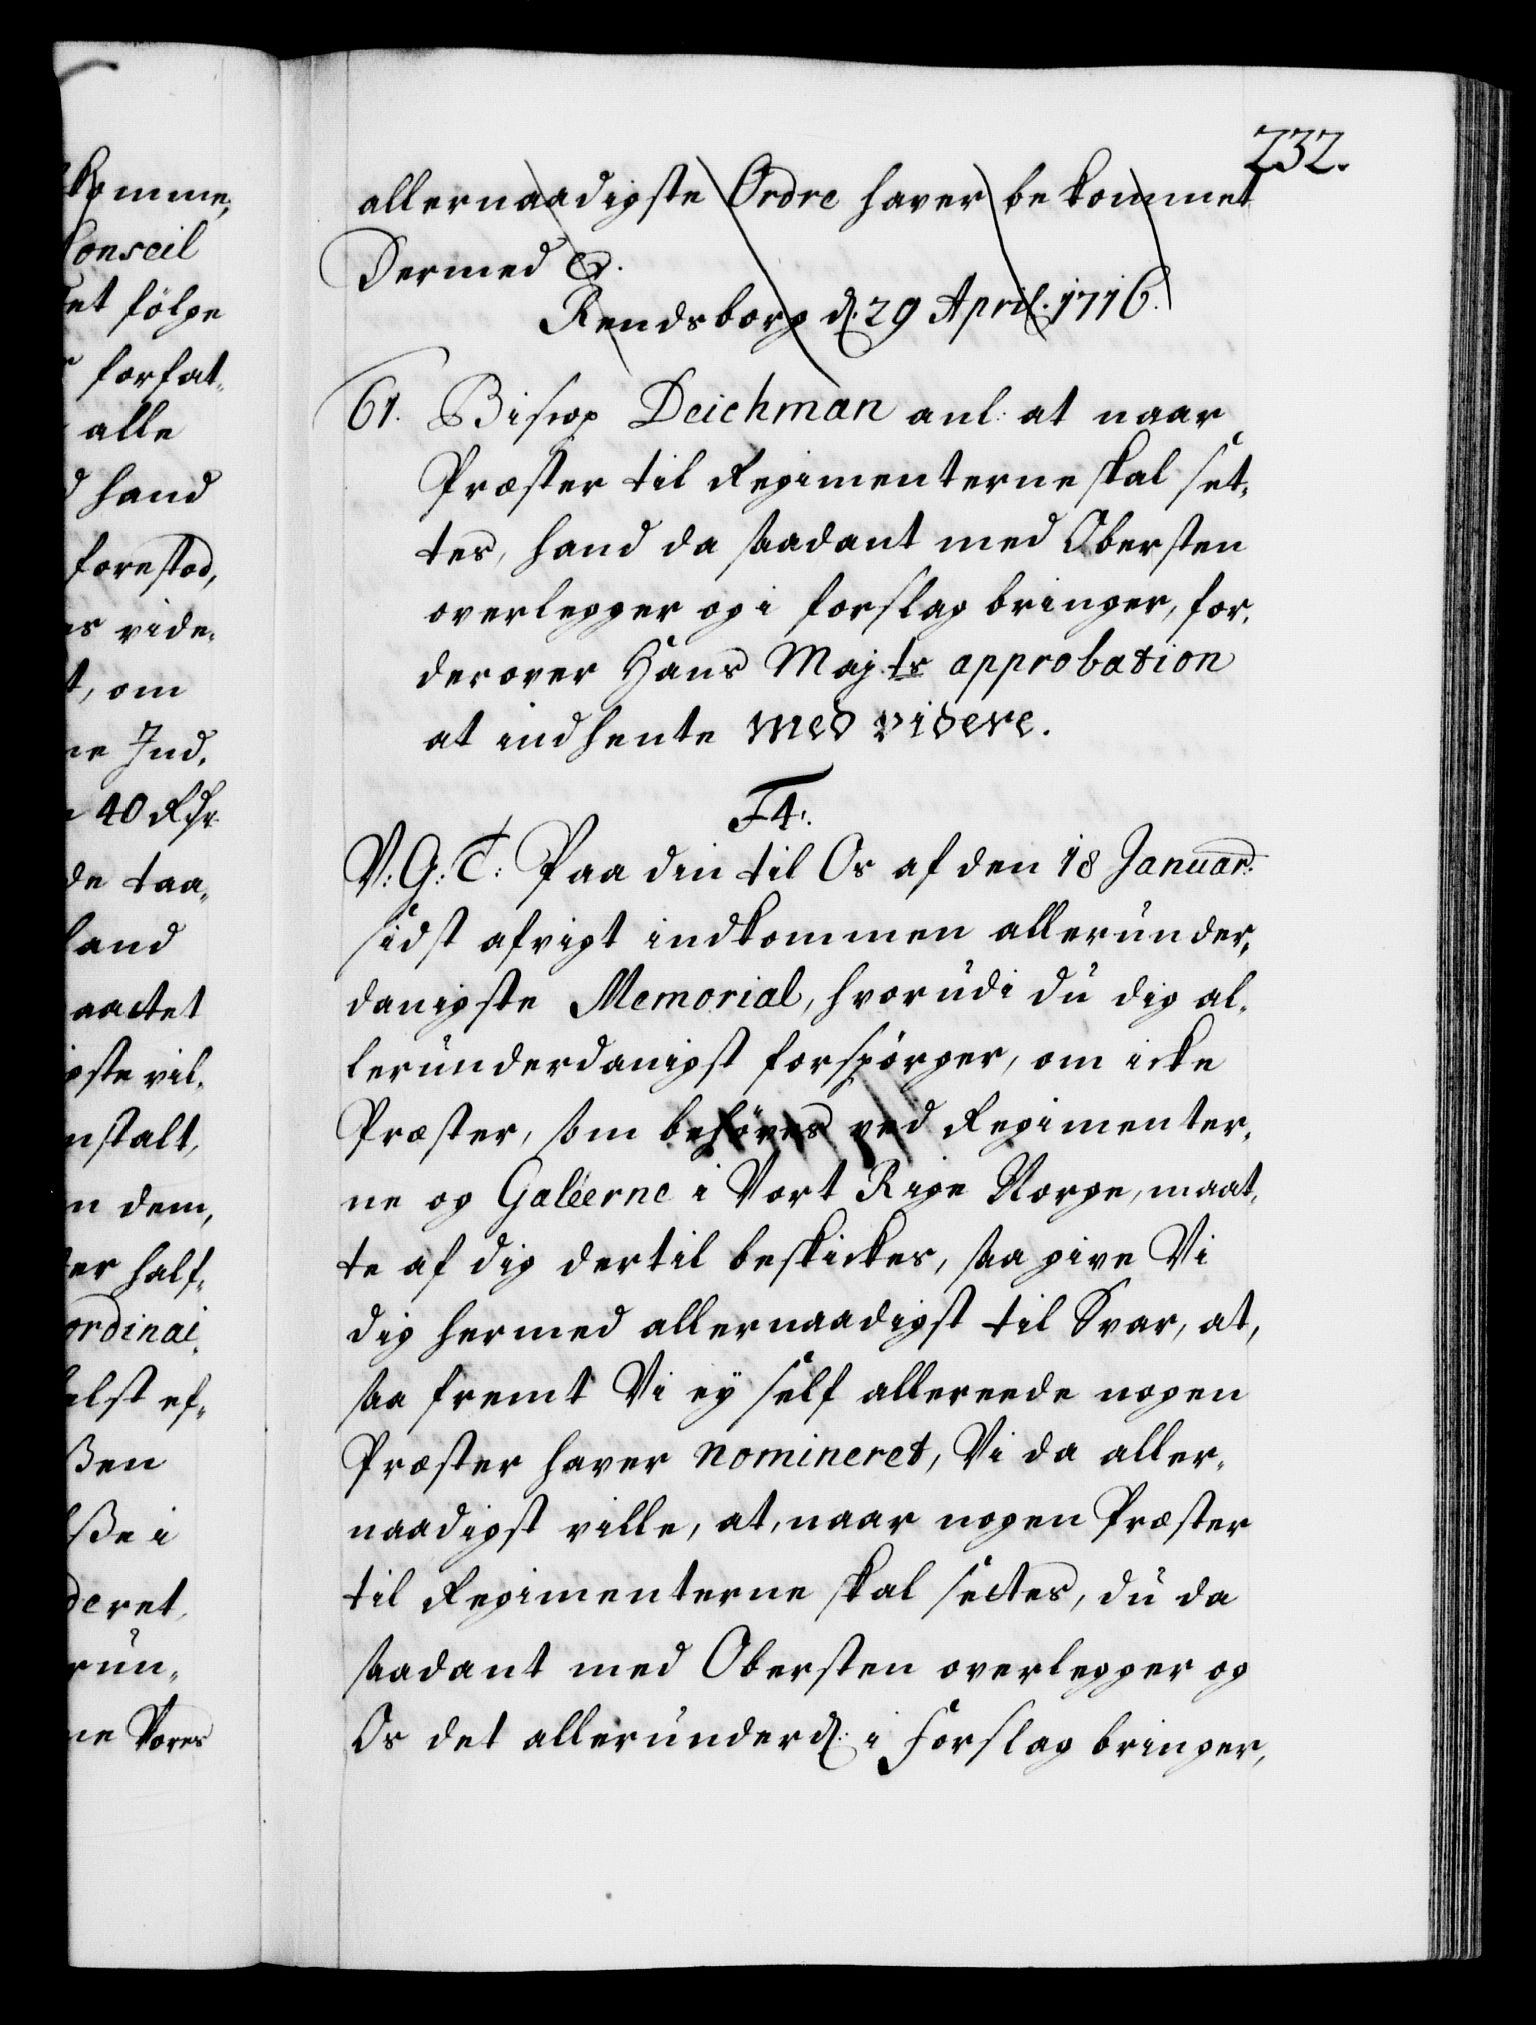 232.
allernaadigste Ordre haver bekommet
Dermed &.
Rendsborg d. 29 April. 1716.
61. Bisop Deichman anl: at naar
Præster til Regimenterne skal set¬
tes, hand da saadant med Obersten
overlegger og i forslag bringer, for
derover Hans Majts approbation
at indhente med videre.
F4.
V: G: T: Paa din til Os af den 18 Januar:
sidst afvigt indkommen allerunder¬
danigste Memorial, hvorudi du dig al¬
lerunderdanigst forspörger, om icke
Præster, som behöves ved Regimenter¬
ne og Galéerne i Vort Rige Norge, maat¬
te af dig dertil beskickes, saa give Vi
dig hermed allernaadigst til Svar, at,
saa fremt Vi ey self allereede nogen
Præster haver nomineret, Vi da aller¬
naadigst ville, at, naar nogen Præster
til Regimenterne skal settes, du da
saadant med Obersten overlegger og
Os det allerunderd: i Forslag bringer,
komme,
Conseil
et fölge
forfat¬
alle
hand
forestod,
es vide¬
t, om
ne Ind¬
40 Rdr
de taa¬
land
aactet
gste vil¬
nstalt,
n dem,
ter half¬
ordinai¬
elst ef¬
ßen
lße i
deret
run¬
ne Vores